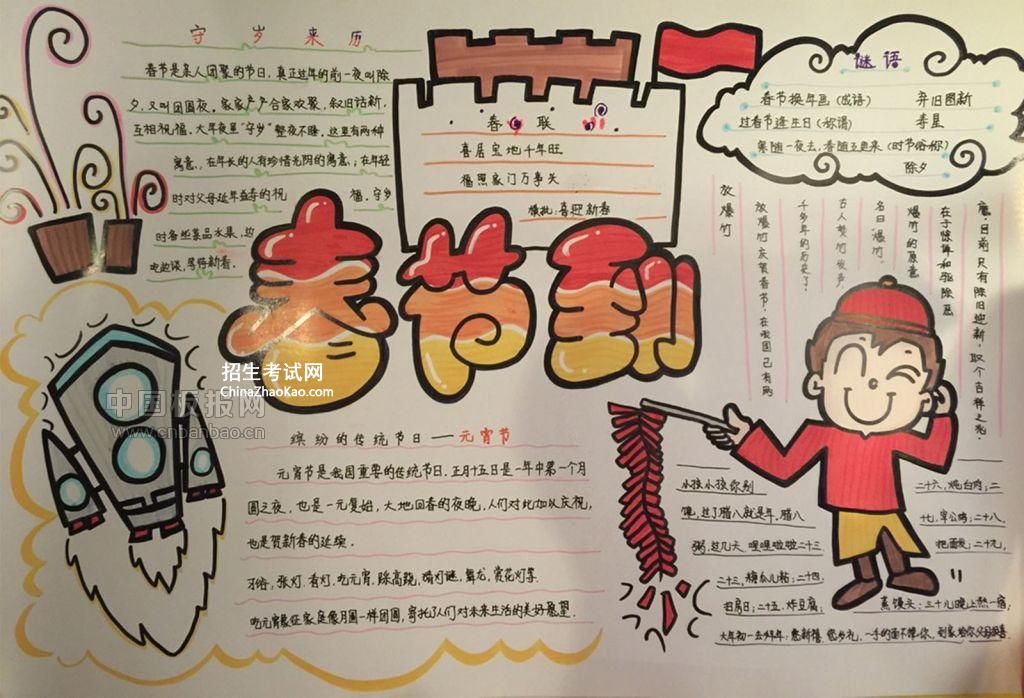 守岁来历
春节是亲人团聚的节日,真正过年的前一夜叫除
夕,又叫团圆夜,家家户户合家欢聚,叙旧话新,
互相祝福,大年夜里"守岁"整夜不睡,这里有两种
寓意,在年长的人有珍惜光阴的寓意;在年轻
时对父母延年益寿的祝 福,守岁
时备些菜品水果,边
吃边谈,等待新春.
春联
喜居宝地千年旺
福照家门万事兴
横批:喜迎新春
谜语
春节换年画(成语) 弃旧图新
过春节逢生日(称谓) 李星
寒随一夜去,春随五更来(时节俗称)
除夕
放爆竹
放爆竹庆贺春节,在我国已有两
千多年的历史了.
古人焚竹发声,
名曰"爆竹".
爆竹的原意
在于除阵和驱除恶
魔,目前只有除旧迎新,取个吉祥之兆.
春节到
招生考试网
ChinaZhaoKao.com
中国板报网
www.cnbanbao.cn
缤纷的传统节日——元宵节
元宵节是我国重要的传统节日,正月十五日是一年中第一个月
圆之夜,也是一元复始,大地回春的夜晚,人们对此加以庆祝,
也是贺新春的延续.
习俗,张灯.看灯.吃元宵.踩高跷,猜灯谜,舞龙,赏花灯等.
吃元宵象征家庭像月圆一样团圆,寄托了人们对未来生活的美好愿望.
小孩小孩你别
馋,过了腊八就是年,腊八
粥,过几天,哩哩啦啦二十三
二十三,糖瓜儿粘;二十四,
扫房日;二十五,炸豆腐;
二十六,炖白肉;二
十七,宰公鸡;二十八,
把面发;二十九,
蒸馒头;三十儿晚上熬一宿;
大年初一去拜年:您新禧,您多礼,一手的面不搀你,到家给你父母道喜.